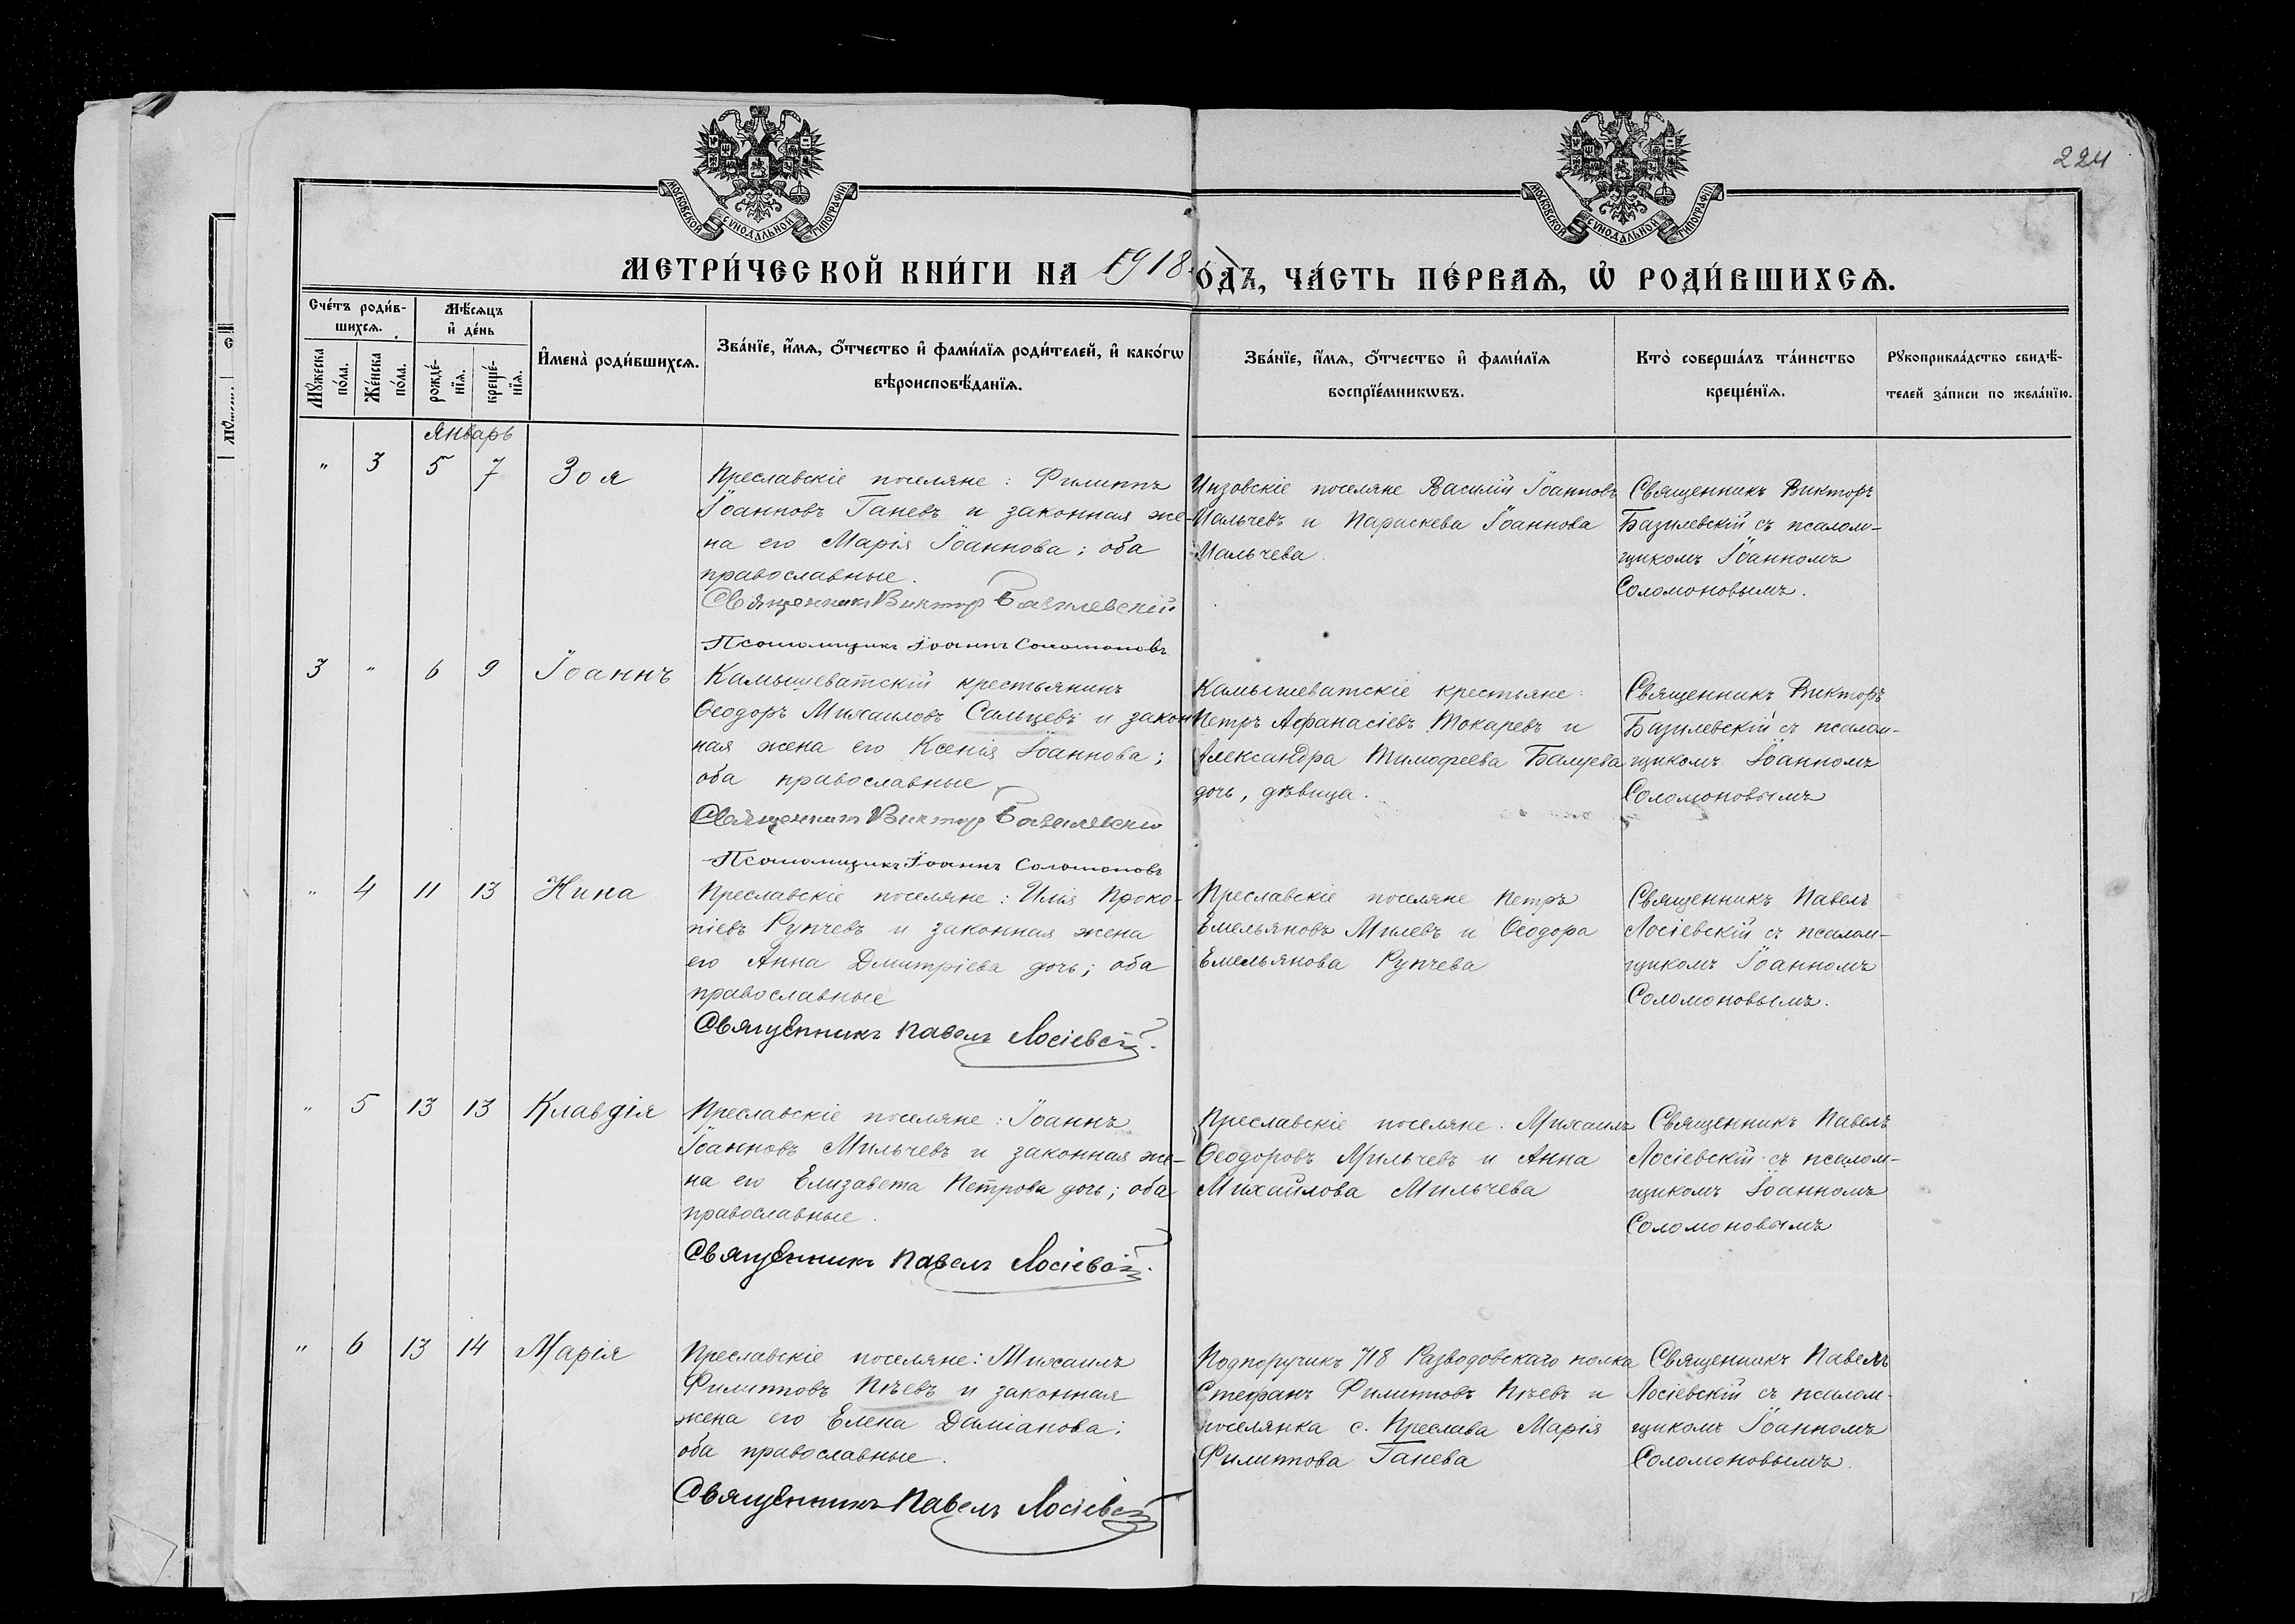 224
МОСКОВСКОЙ СѴНОДАЛЬНОЙ ТИПОГРАФІИ
МОСКОВСКОЙ СѴНОДАЛЬНОЙ ТИПОГРАФІИ
МЕТРИ́ЧЕСКОЙ КНИ́ГИ НА 1918 ГО́ДЪ, ЧА́СТЬ ПЕ́РВАѦ, Ѡ҆ РОДИ́ВШИХСѦ.
Сче́тъ роди́в-
шихсѧ.
Мꙋ́жеска
по́ла.
Же́нска
по́ла.
Мѣ́сѧцъ
и҆ де́нь
рожде́-
нїѧ.
креще́-
нїѧ.
И҆мена̀ роди́вшихсѧ.
Зва́нїе, и҆́мѧ, ѻ҆́тчество и҆ фами́лїѧ роди́телей, и҆ како́гѡ
вѣроисповѣ́данїѧ.
Зва́нїе, и҆́мѧ, ѻ҆́тчество и҆ фами́лїѧ
воспрїе́мникѡвъ.
Кто̀ соверша́лъ та́инство
креще́нїѧ.
Рꙋкоприкла́дство свидѣ́-
телей за́писи по жела́нїю.
Январь
" 3 5 7 Зоя
Преславскіе поселяне: Филиппъ
Іоанновъ Ганевъ и законная же-
на его Марія Іоаннова; оба
православные.
Священникъ Викторъ Базилевскій
Псаломщикъ Іоаннъ Соломоновъ
Инзовскіе поселяне Василій Іоанновъ
Мальчевъ и Параскева Іоаннова
Мальчева.
Священникъ Викторъ
Базилевскій съ псалом-
щикомъ Іоанномъ
Соломоновымъ.
3 " 6 9 Іоаннъ
Камышеватскій крестьянинъ
Ѳеодоръ Михаиловъ Сальцевъ и закон
ная жена его Ксенія Іоаннова;
оба православные
Священникъ Викторъ Базилевскій
Псаломщикъ Іоаннъ Соломоновъ
Камышеватскіе крестьяне:
Петръ Аѳанасіевъ Токаревъ и
Александра Тимофеева Балуева
дочь, дѣвица.
Священникъ Викторъ
Базилевскій съ псалом-
щикомъ Іоанномъ
Соломоновымъ
" 4 11 13 Нина
Преславскіе поселяне: Илія Проко-
піевъ Рупчевъ и законная жена
его Анна Дмитріева дочь; оба
православные
Священникъ Павелъ Лосіевскій.
Преславскіе поселяне Петръ
Емельяновъ Милевъ и Ѳеодора
Емельянова Рупчева
Священникъ Павелъ
Лосіевскій съ псалом-
щикомъ Іоанномъ
Соломоновымъ.
" 5 13 13 Клавдія
Преславскіе поселяне: Іоаннъ
Іоанновъ Мильчевъ и законная же-
на его Елизавета Петрова дочь; оба
православные.
Священникъ Павелъ Лосіевскій.
Преславскіе поселяне. Михаилъ
Ѳеодоровъ Мильчевъ и Анна
Михайлова Мильчева
Священникъ Павелъ
Лосіевскій съ псалом-
щикомъ Іоанномъ
Соломоновымъ
" 6 13 14 Марія
Преславскіе поселяне: Михаилъ
Филипповъ Пѣевъ и законная
жена его Елена Даміанова;
оба православные.
Священникъ Павелъ Лосіевскій
Подпоручикъ 718 Разводовскаго полка
Стефанъ Филипповъ Пѣевъ и
поселянка с. Преслава Марія
Филиппова Ганева
Священникъ Павелъ
Лосіевскій съ псалом-
щикомъ Іоанномъ
Соломоновымъ.